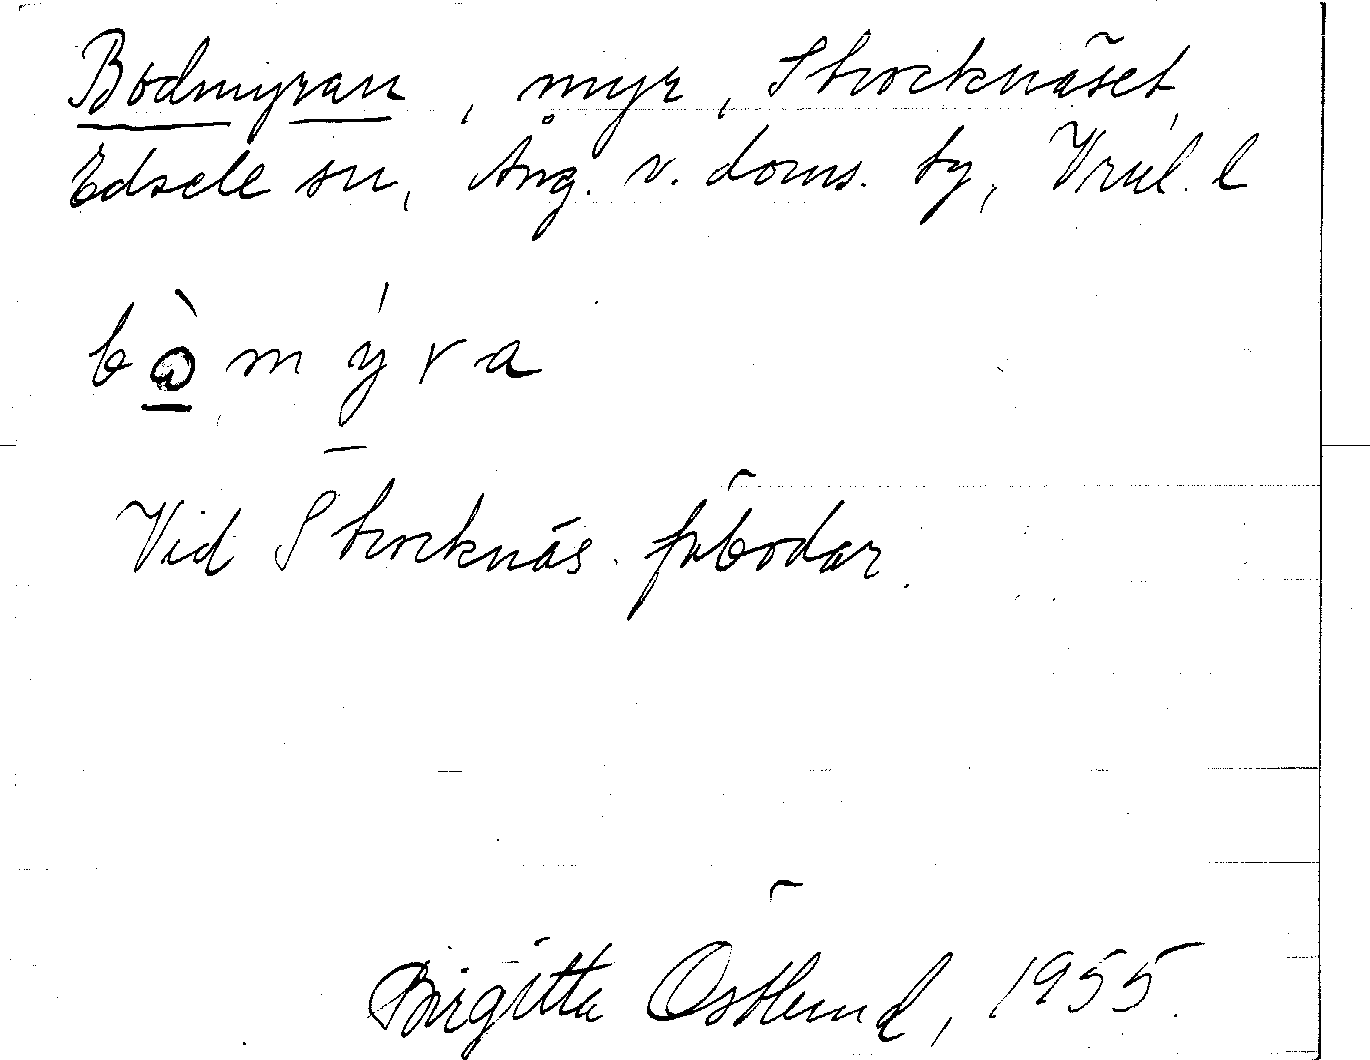 Bodmyran, myr, Stocknäset,
Edsele sn, Ång. v. doms. by, Vrul. l
bòmýra
Vid Stocknäs fäbodar.
Birgitta Östlund, 1955.